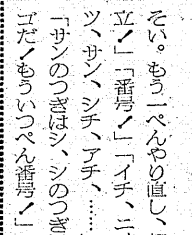 そい。もう一ぺんやり直し、
立！」「番号！」「イチ、ニ
ツ、サン、シチ、アチ、……
「サンのつぎはシ、シのつぎ
ゴだ！もういつぺん番号！」